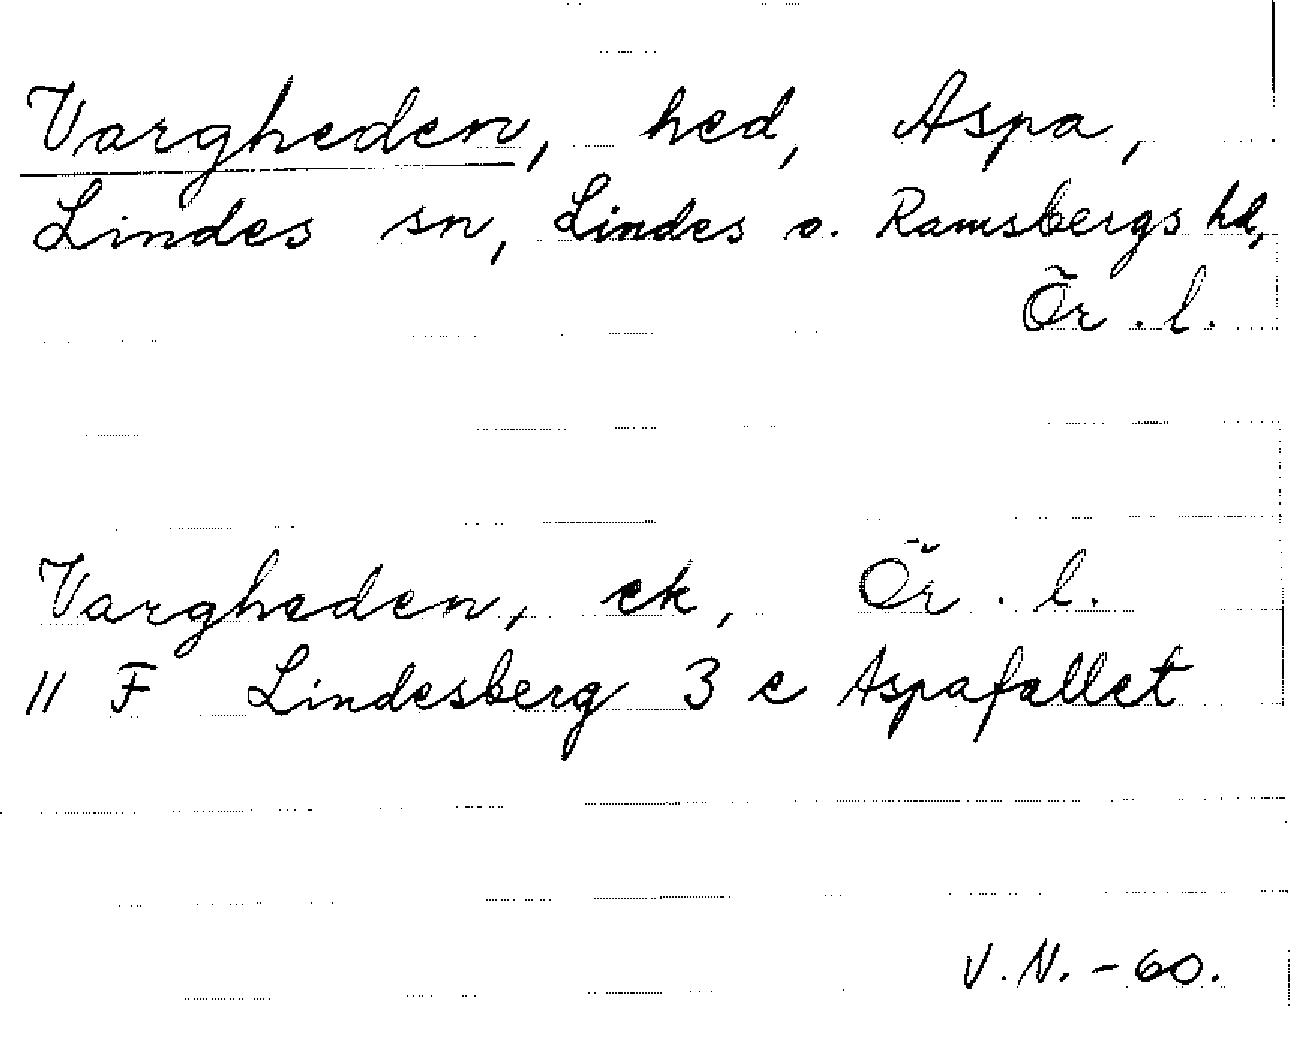 Vargheden, hed, Aspa,
Lindes sn, Lindes o. Ramsbergs hd,
Ör. l.
Vargheden, ek, Ör. l.
11 F Lindesberg 3 c Aspafallet
V.N. -60.